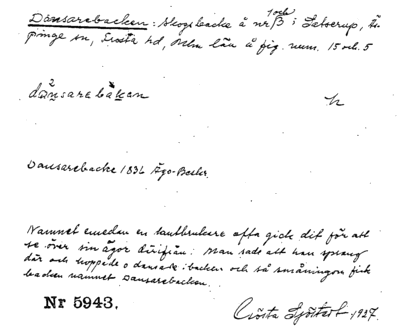 1 och
Dansarebacken: Skogsbacke å nr 13 i Satserup, Äs-
pinge sn, Frosta hd, Mlm län å fig. num. 15 och 5
dansarebäken
h
Dansarebacke 1836 Ägo-Beskr.
Namnet emedan en lantbrukare ofta gick dit för att
se över sin ägor därifrån: Man sade att han sprang
där och hoppade o dansade i backen och så småningom fick
backen namnet Dansarebacken.
Nr 5943.
Gösta Sjöstedt 1927.